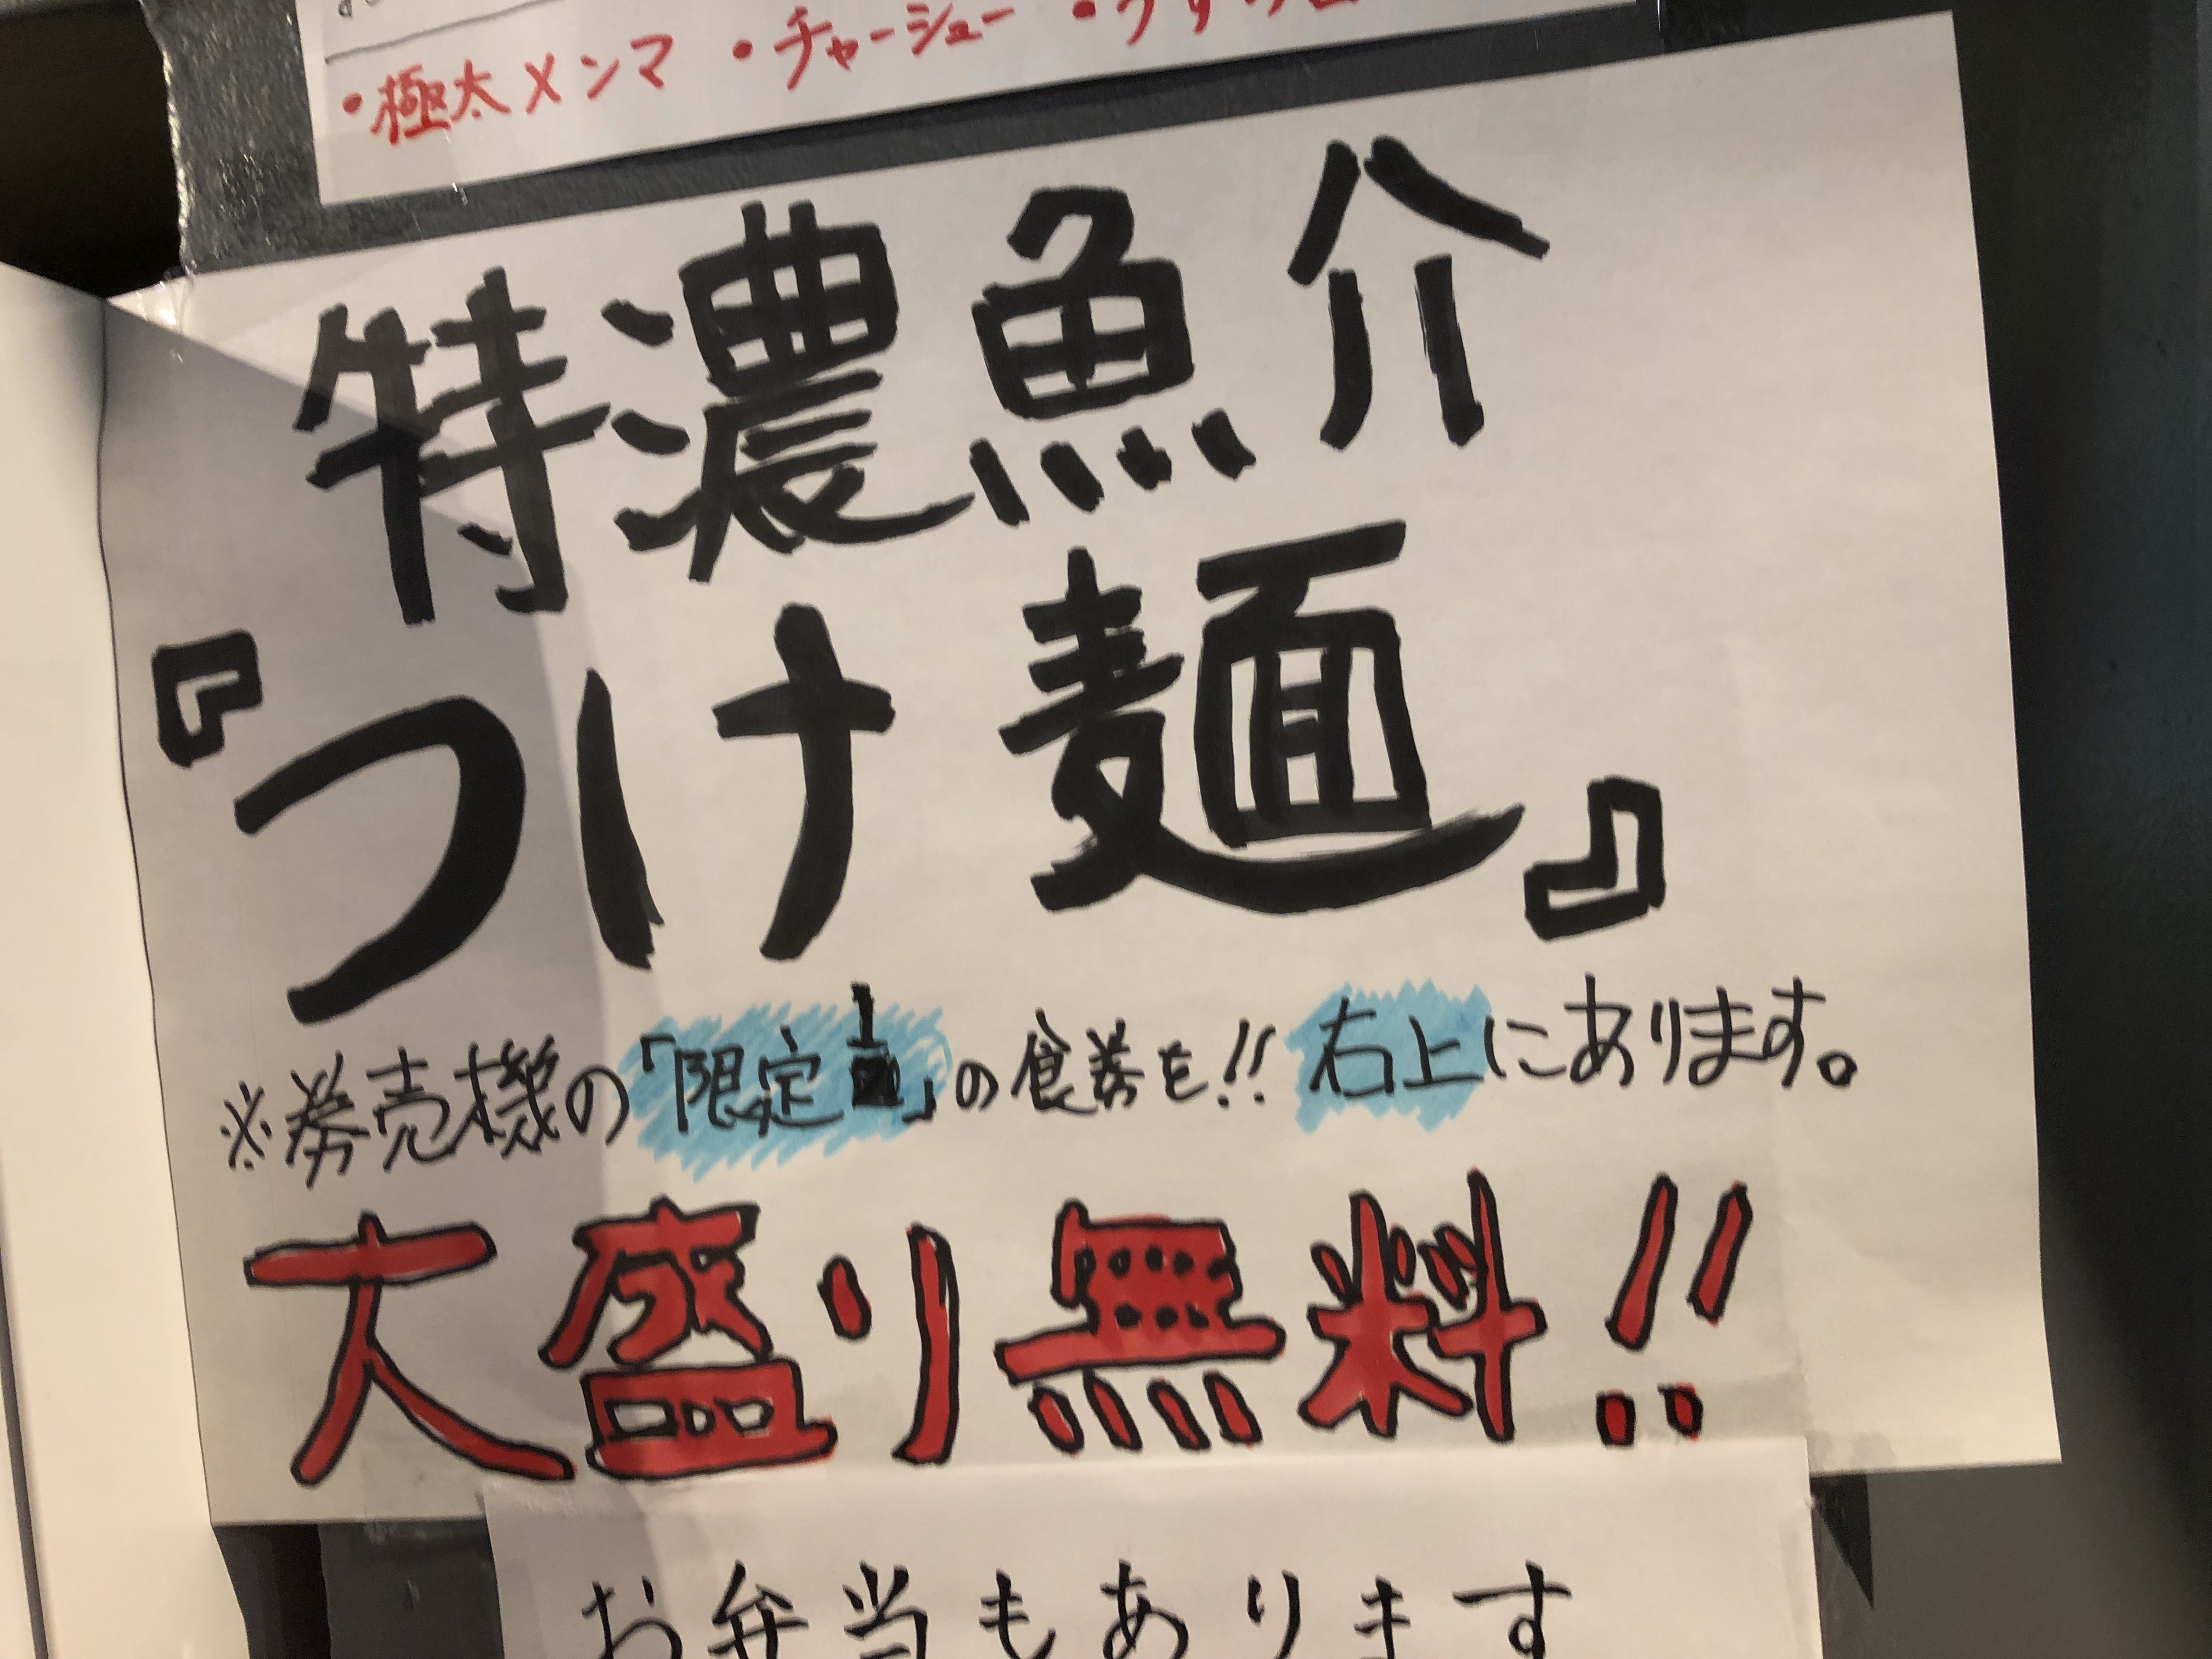 ・極太メンマ ・チャーシュー ・
特濃魚介
『つけ麺』
※券売機の「限定1」の食券を!! 右上にあります。
大盛り無料!!
お弁当もあります